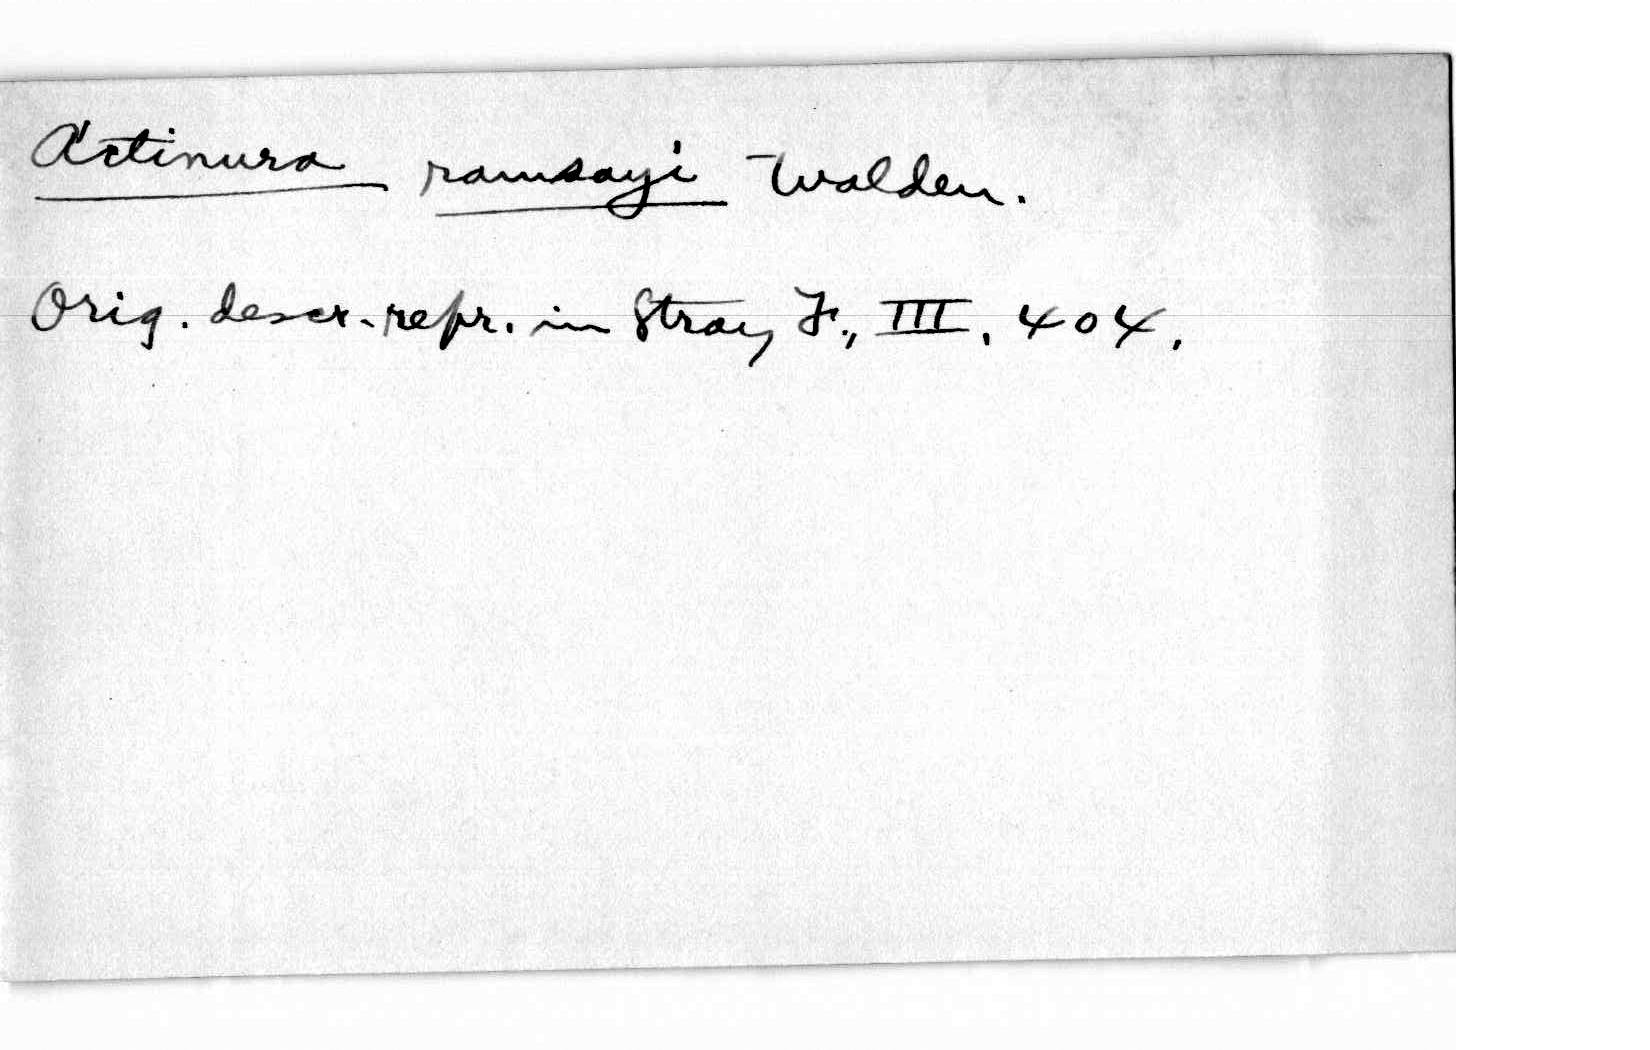 Actinura ramsayi Walden.
Orig. descr. repr. in Stray F., III, 404.